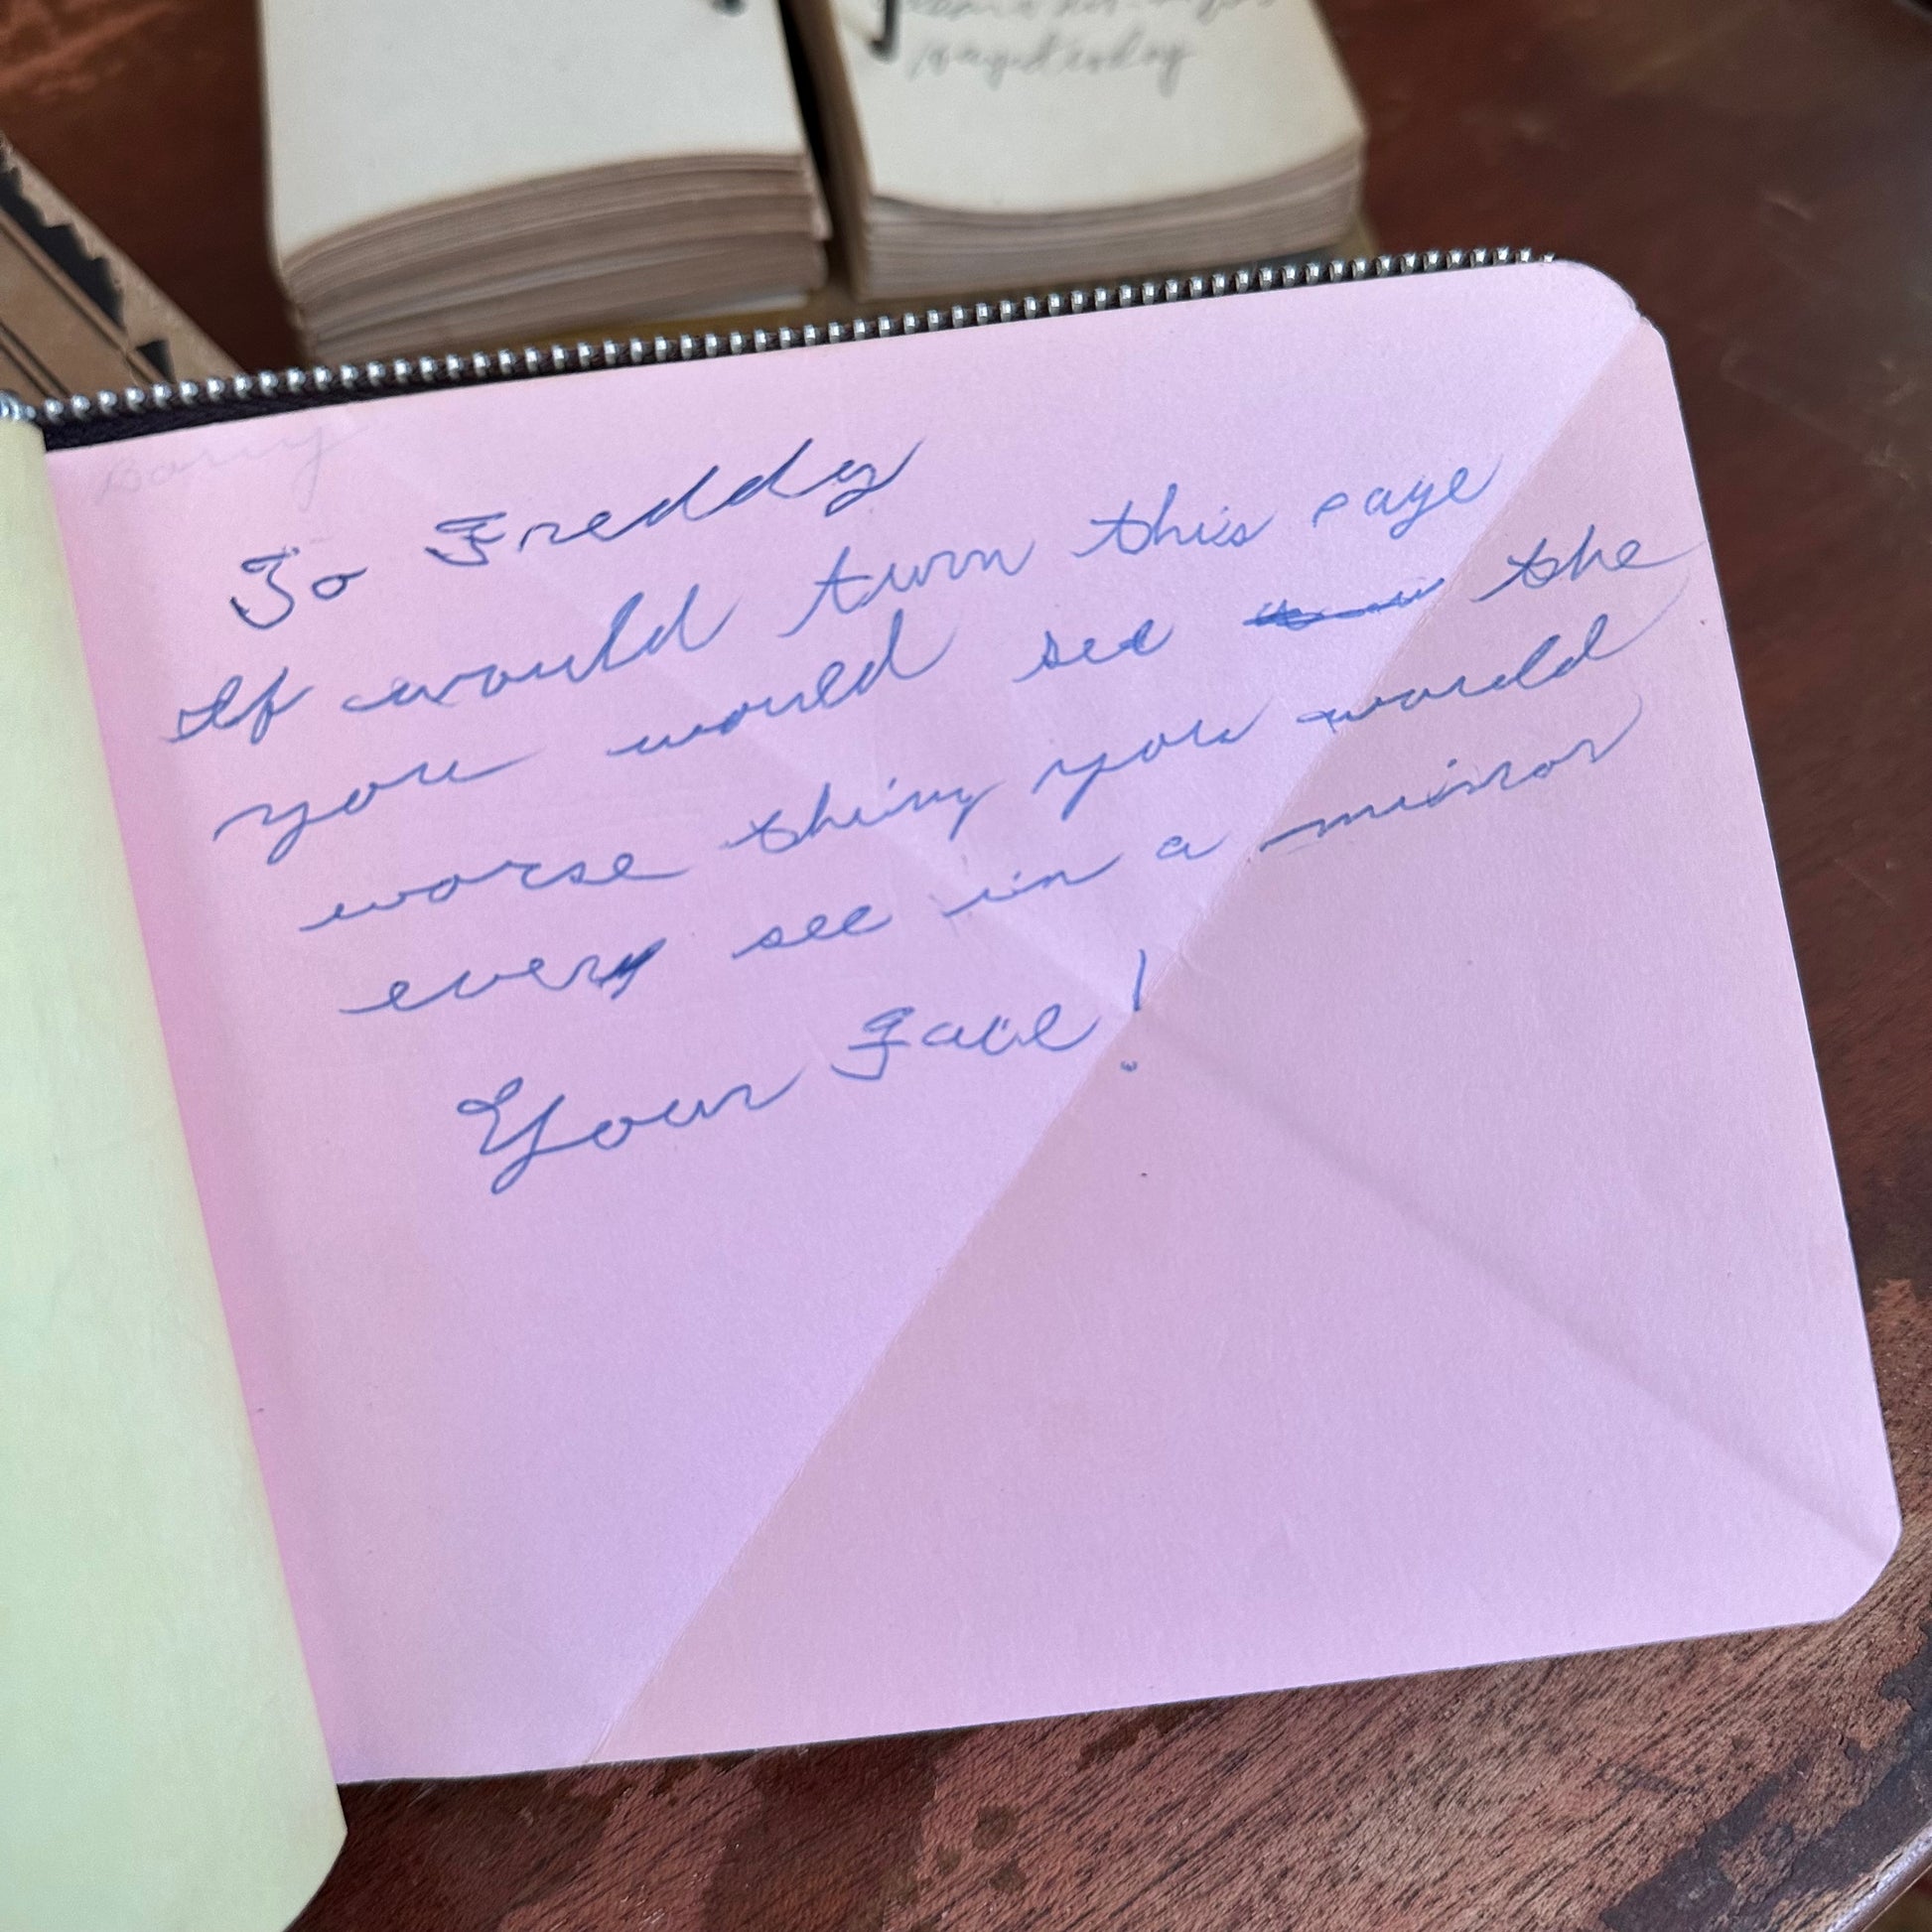 pays today
Barry
To Freddy
If would turn this page
you would see the
worse thing you would
every see in a mirror
Your Face!